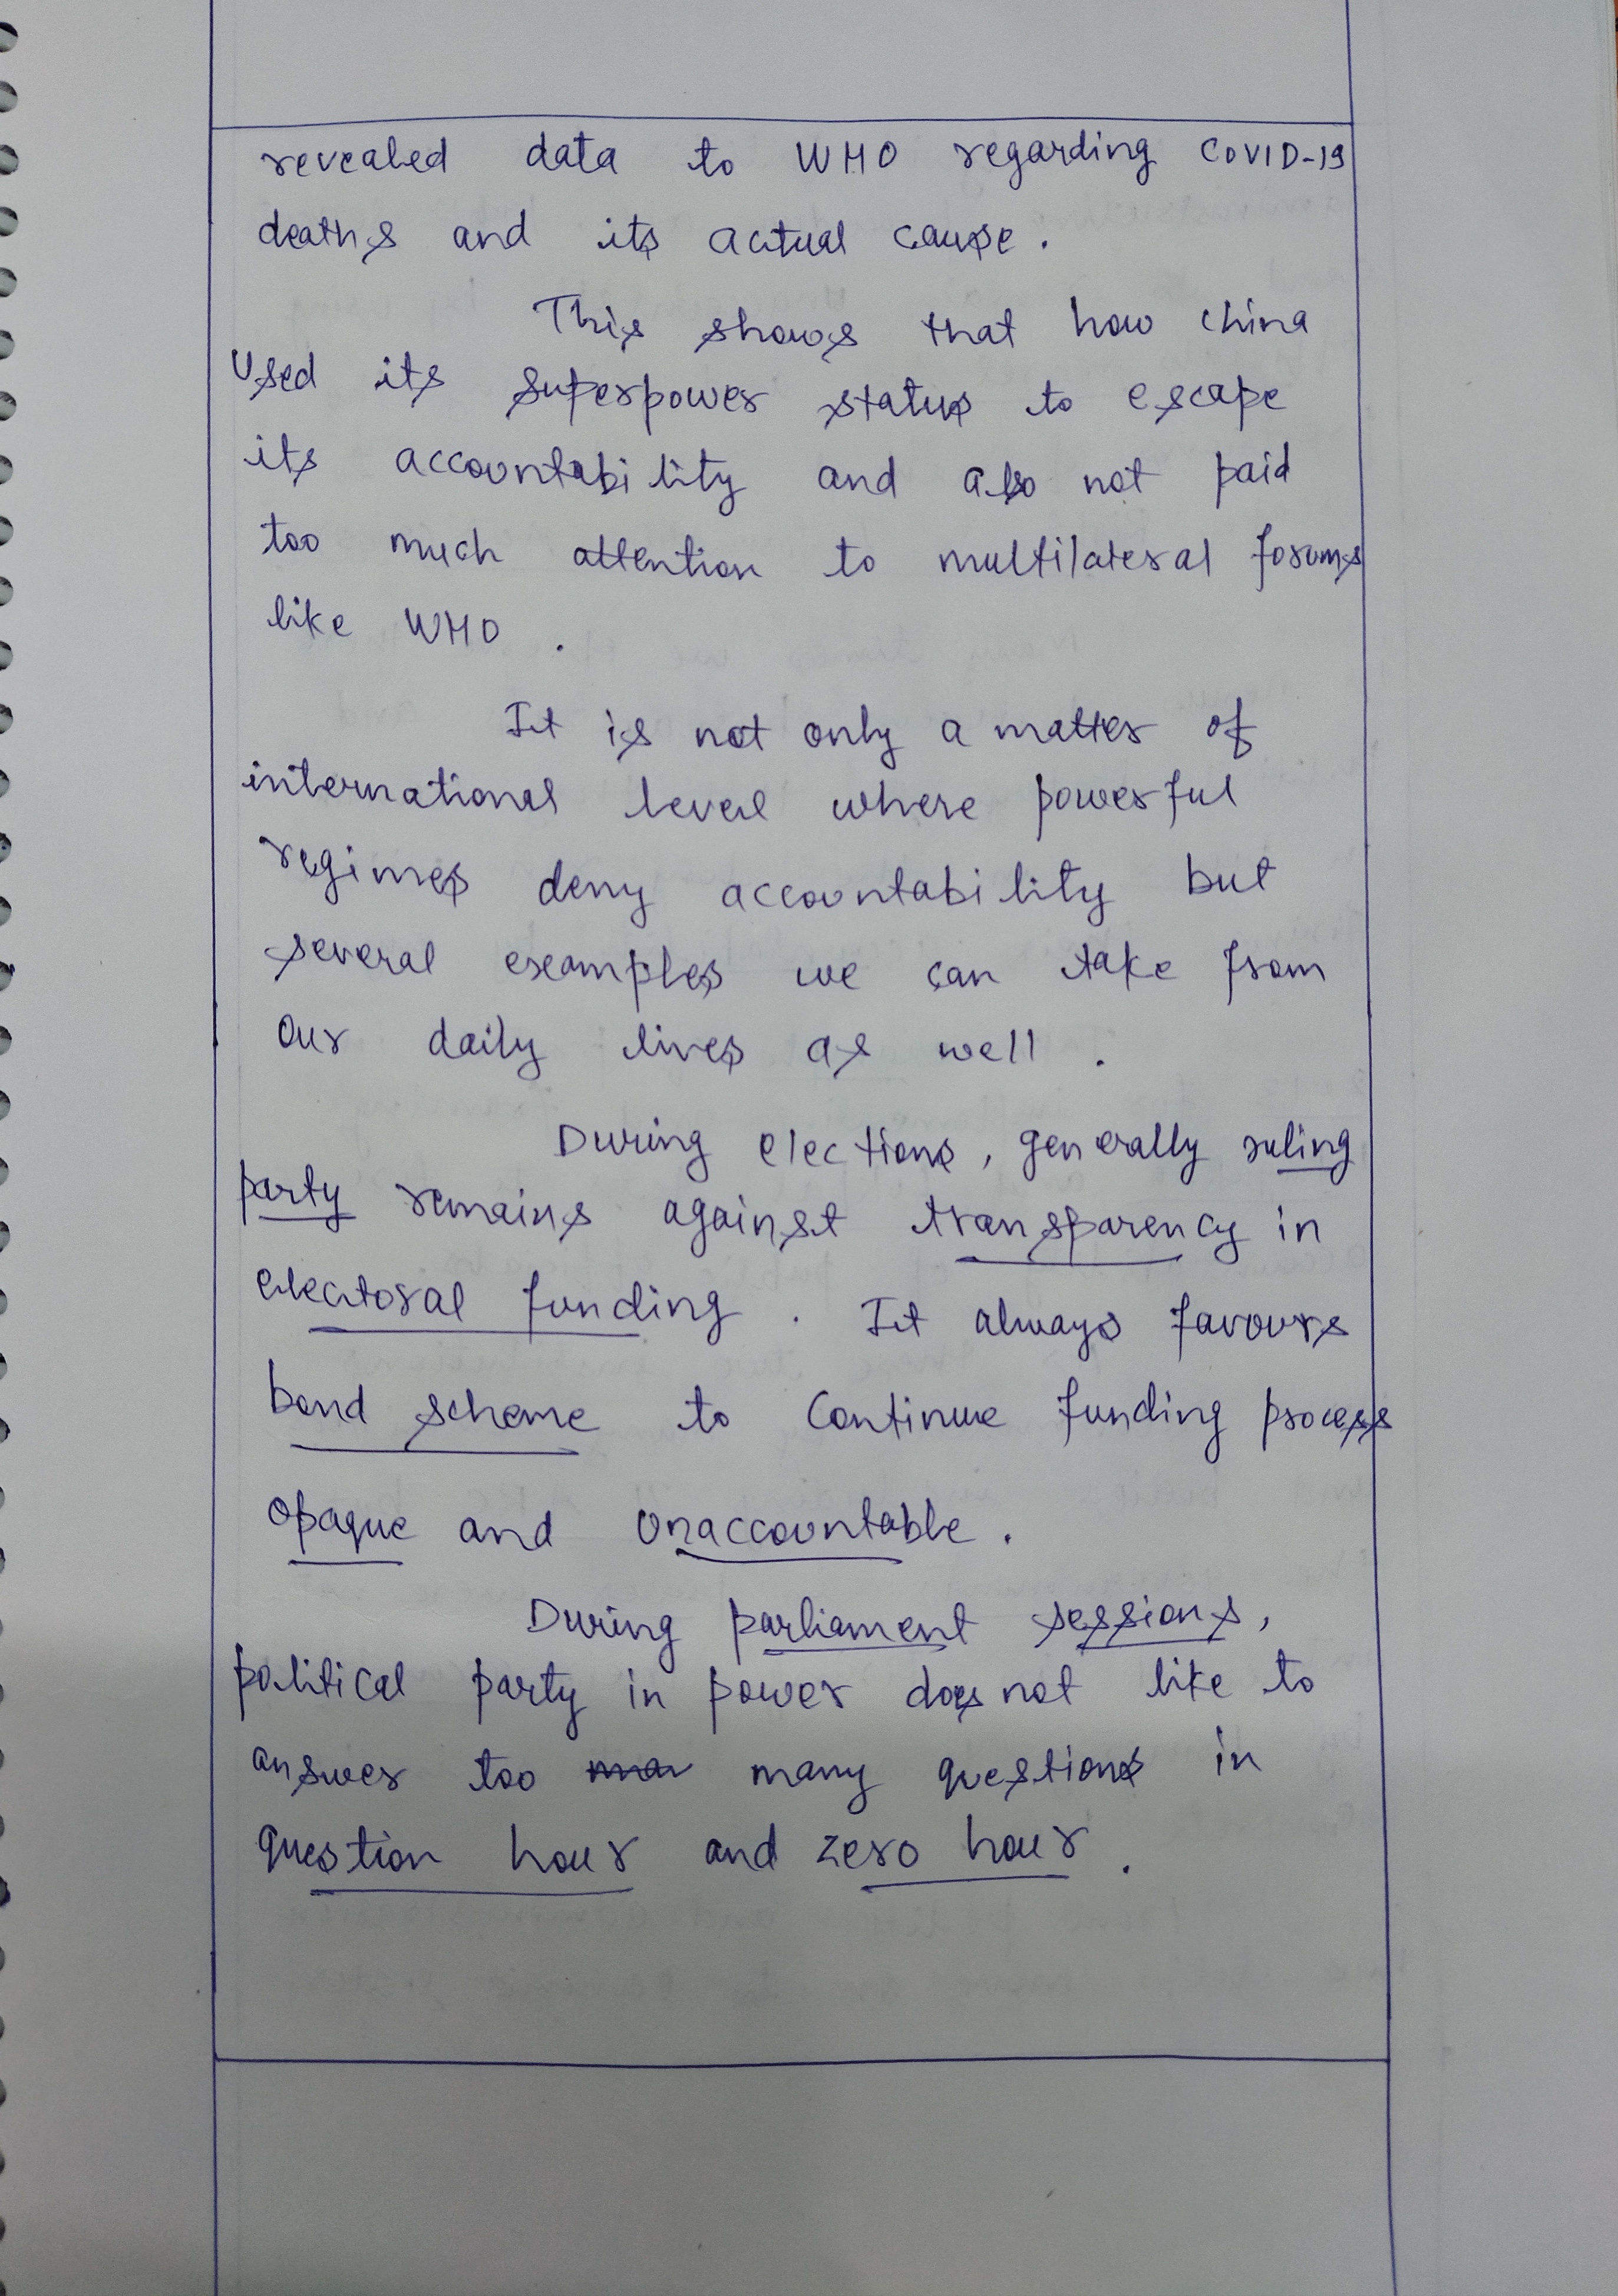 revealed data to WHO regarding COVID-19
deaths and its actual cause.
This shows that how china
used its superpower status to escape
its accountability and also not paid
too much attention to multilateral forums
like WHO.
It is not only a matter of
international level where powerful
regimes deny accountability but
several examples we can take from
our daily lives as well.
During elections, generally ruling
party remains against transparency in
electoral funding. It always favours
bond scheme to continue funding process
opaque and unaccountable.
During parliament sessions,
political party in power does not like to
answer too many questions in
question hour and zero hour.